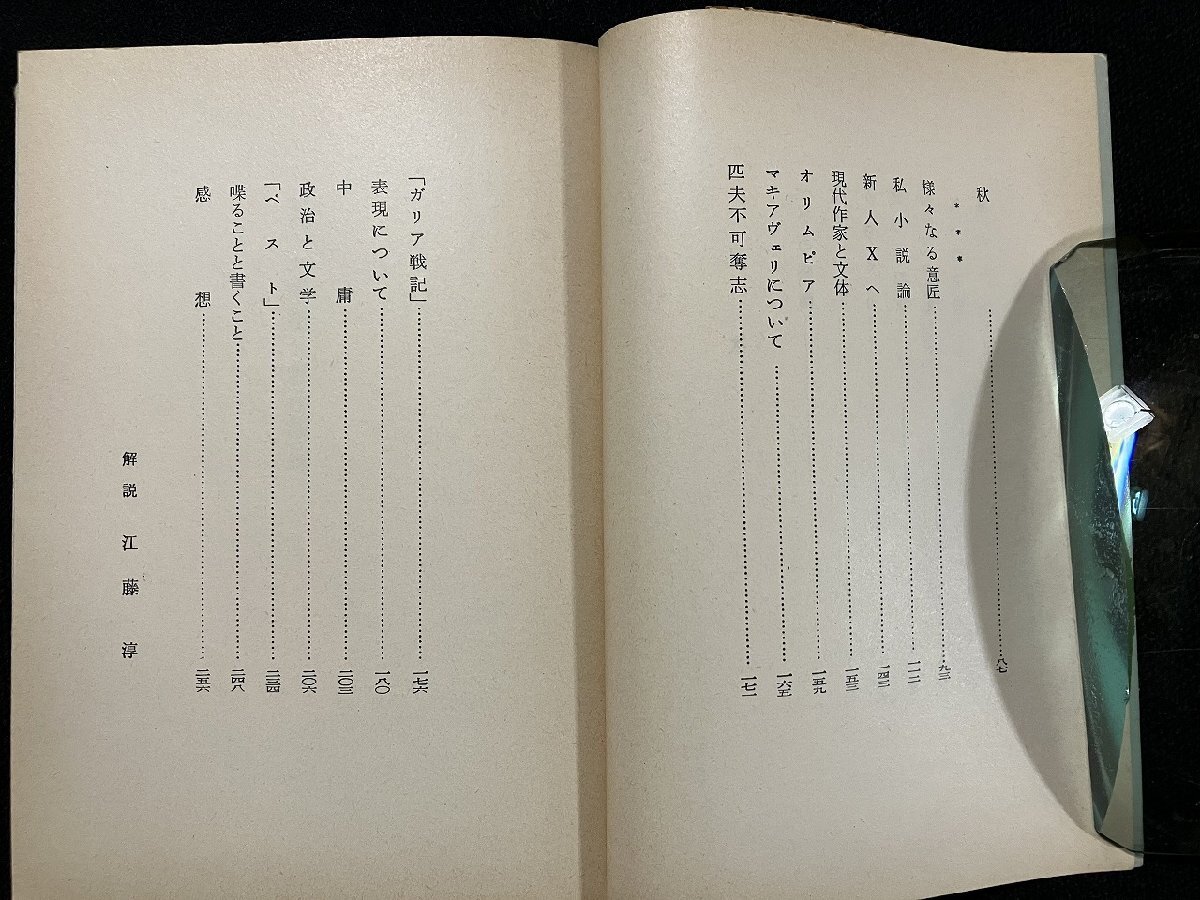 秋……八七
＊＊＊
様々なる意匠……九三
私小説論……一一二
新人Xへ……一四三
現代作家と文体……一五三
オリムピア……一五九
マキアヴェリについて……一六五
匹夫不可奪志……一七一
「ガリア戦記」……一七六
表現について……一八〇
中庸……二〇三
政治と文学……二〇六
「ペスト」……二三四
喋ることと書くこと……二四八
感想……二五六
解説 江藤淳